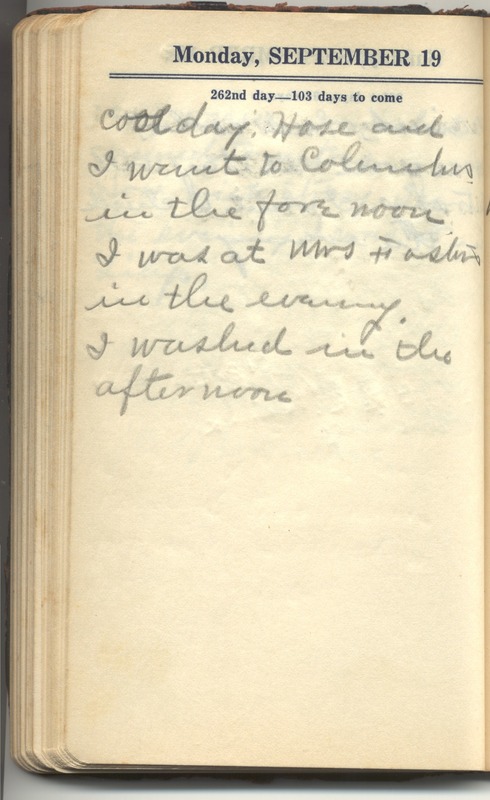 Monday, SEPTEMBER 19
262nd day—103 days to come
cool day. Hose and
I want to Columbus
in the fore noon
I was at Mrs
in the evening.
I washed in the
afternoon